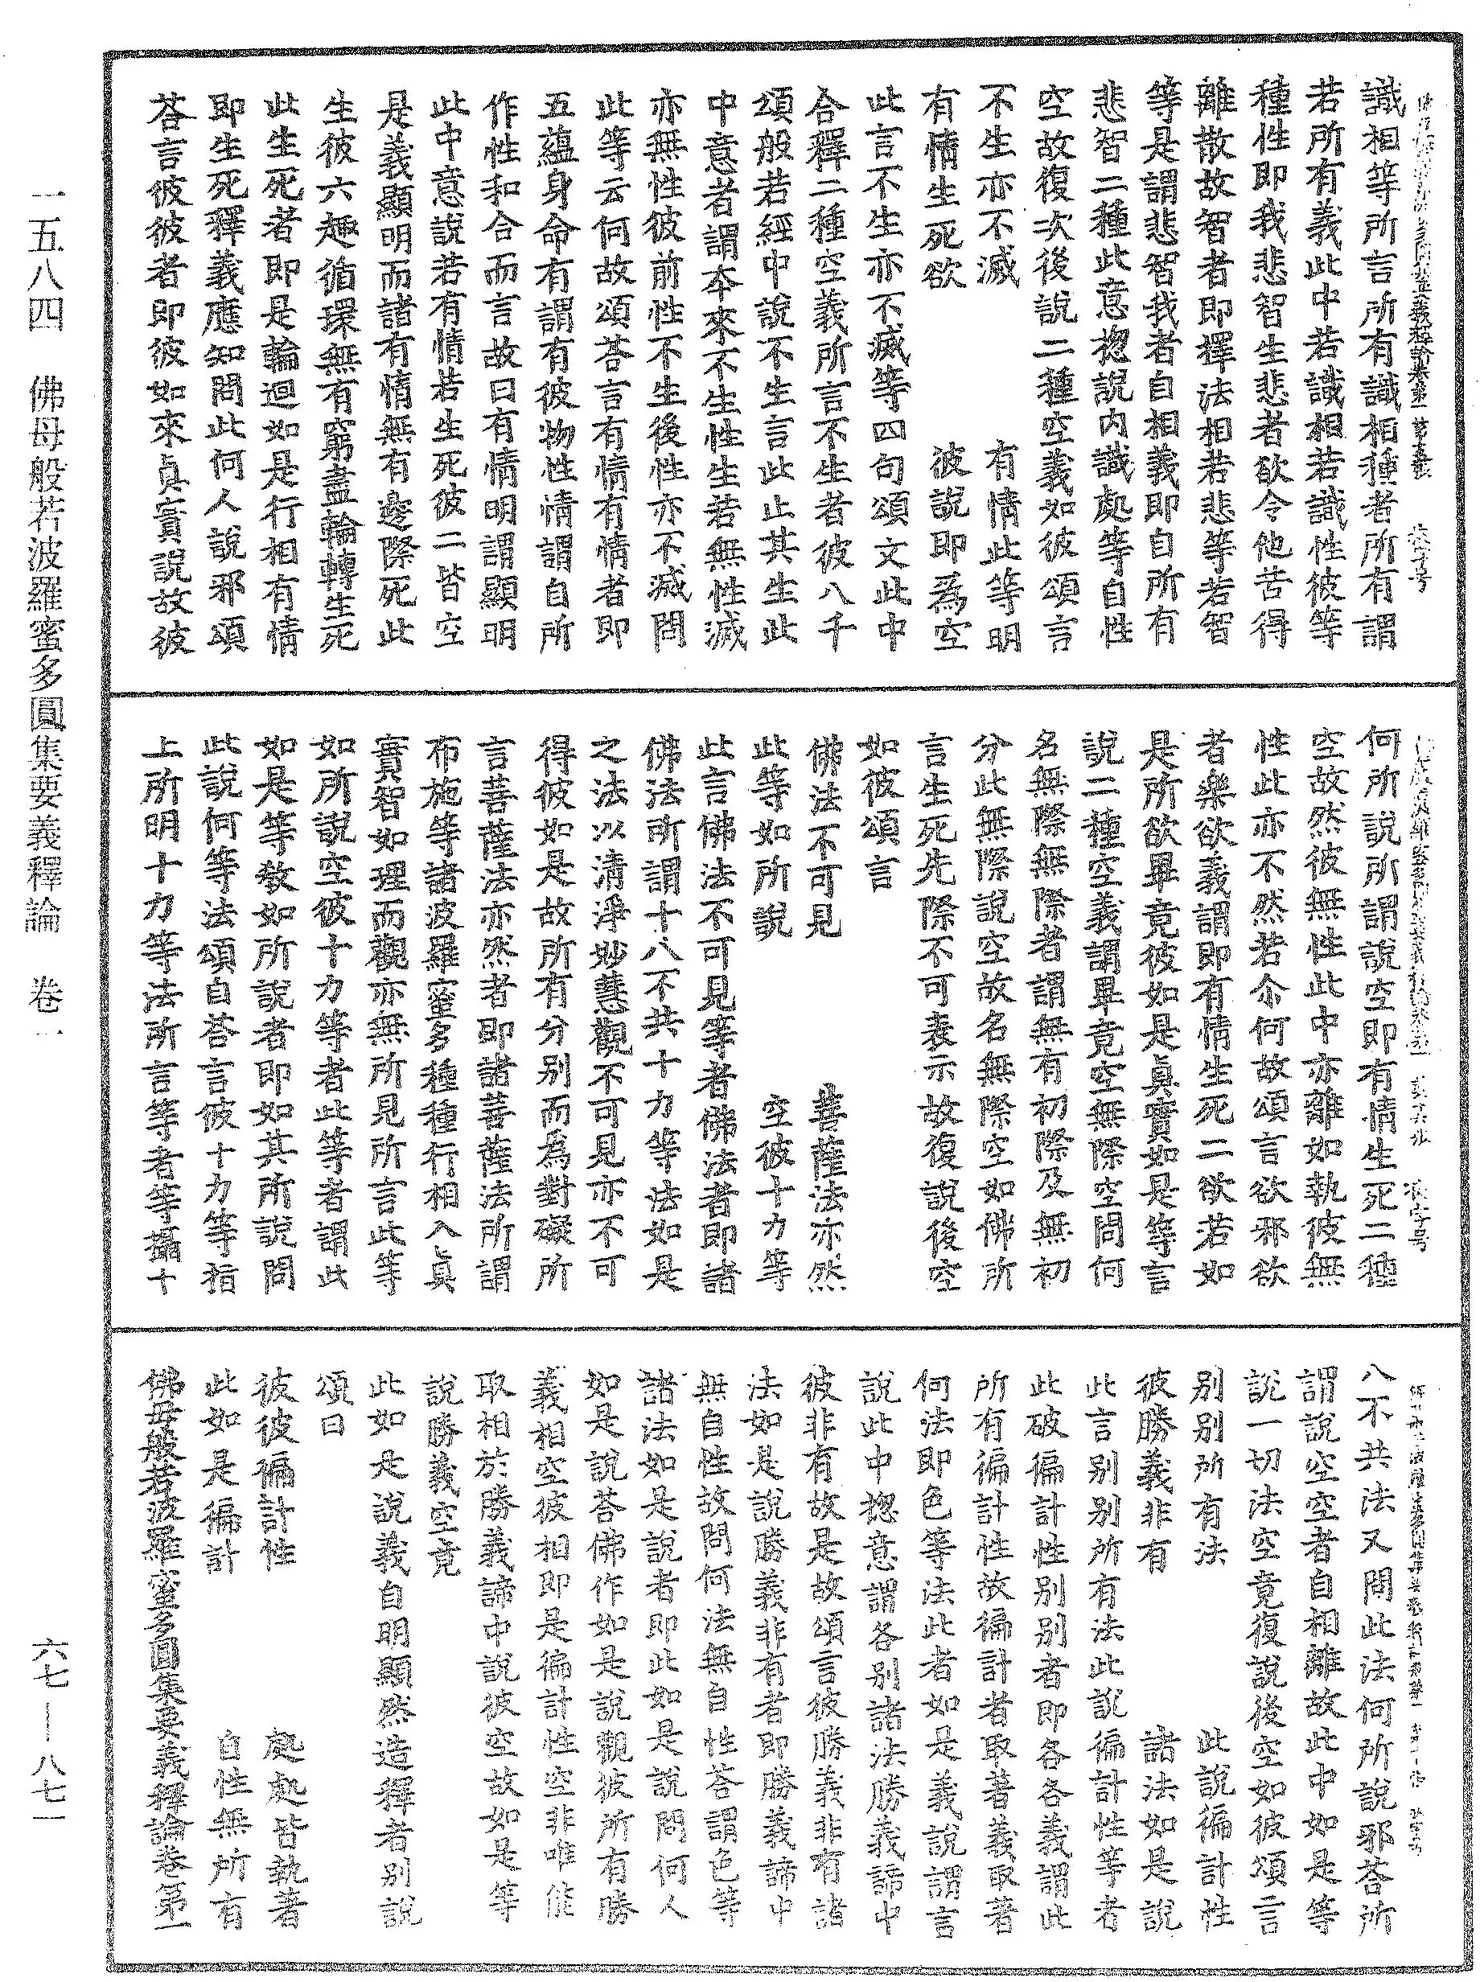 識相等所言所有識相種者所有謂
若所有義此中若識相若識性彼等
種性即我悲智生悲者欲令他苦得
離散故智者即擇法相若悲等若智
等是謂悲智我者自相義即自所有
悲智二種此意揔說內識處等自性
空故復次後說二種空義如彼頌言
不生亦不滅　有情此等明
有情生死欲　彼說即為空
此言不生亦不滅等四句頌文此中
合釋二種空義所言不生者彼八千
頌般若經中說不生言此止其生此
中意者謂夲來不生性生若無性滅
亦無性彼前性不生後性亦不滅問
此等云何故頌荅言有情有情者即
五蘊身命有謂有彼物性情謂自所
作性和合而言故曰有情明謂顯明
此中意說若有情若生死彼二皆空
是義顯明而諸有情無有邊際死此
生彼六趣循環無有窮盡輪轉生死
此生死者即是輪迴如是行相有情
即生死釋義應知問此何人說邪頌
荅言彼彼者即彼如來真實說故彼
何所說所謂說空即有情生死二種
空故然彼無性此中亦離如執彼無
性此亦不然若尒何故頌言欲邪欲
者樂欲義謂即有情生死二欲若如
是所欲畢竟彼如是真實如是等言
說二種空義謂畢竟空無際空問何
名無際無際者謂無有初際及無初
分此無際說空故名無際空如佛所
言生死先際不可表示故復說後空
如彼頌言
佛法不可見　菩薩法亦然
此等如所說　空彼十力等
此言佛法不可見等者佛法者即諸
佛法所謂十八不共十力等法如是
之法以清淨妙慧觀不可見亦不可
得彼如是故所有分別而為對礙所
言菩薩法亦然者即諸菩薩法所謂
布施等諸波羅蜜多種種行相入真
實智如理而觀亦無所見所言此等
如所說空彼十力等者此等者謂此
如是等教如所說者即如其所說問
此說何等法頌自荅言彼十力等指
上所明十力等法所言等者等攝十
八不共法又問此法何所說邪荅所
謂說空空者自相離故此中如是等
說一切法空竟復說後空如彼頌言
別別所有法　此說徧計性
彼勝義非有　諸法如是說
此言別別所有法此說徧計性等者
此破徧計性別別者即各各義謂此
所有徧計性故徧計者取著義取著
何法即色等法此者如是義說謂言
說此中揔意謂各別諸法勝義諦中
彼非有故是故頌言彼勝義非有諸
法如是說勝義非有者即勝義諦中
無自性故問何法無自性荅謂色等
諸法如是說者即此如是說問何人
如是說荅佛作如是說觀彼所有勝
義相空彼相即是徧計性空非唯能
取相於勝義諦中說彼空故如是等
說勝義空竟
此如是說義自明顯然造釋者別說
頌曰
彼彼徧計性　處處皆執著
此如是徧計　自性無所有
佛母般若波羅蜜多圓集要義釋論卷第一
一五八四　佛母般若波羅蜜多圓集要義釋論　卷一
六七—八七一